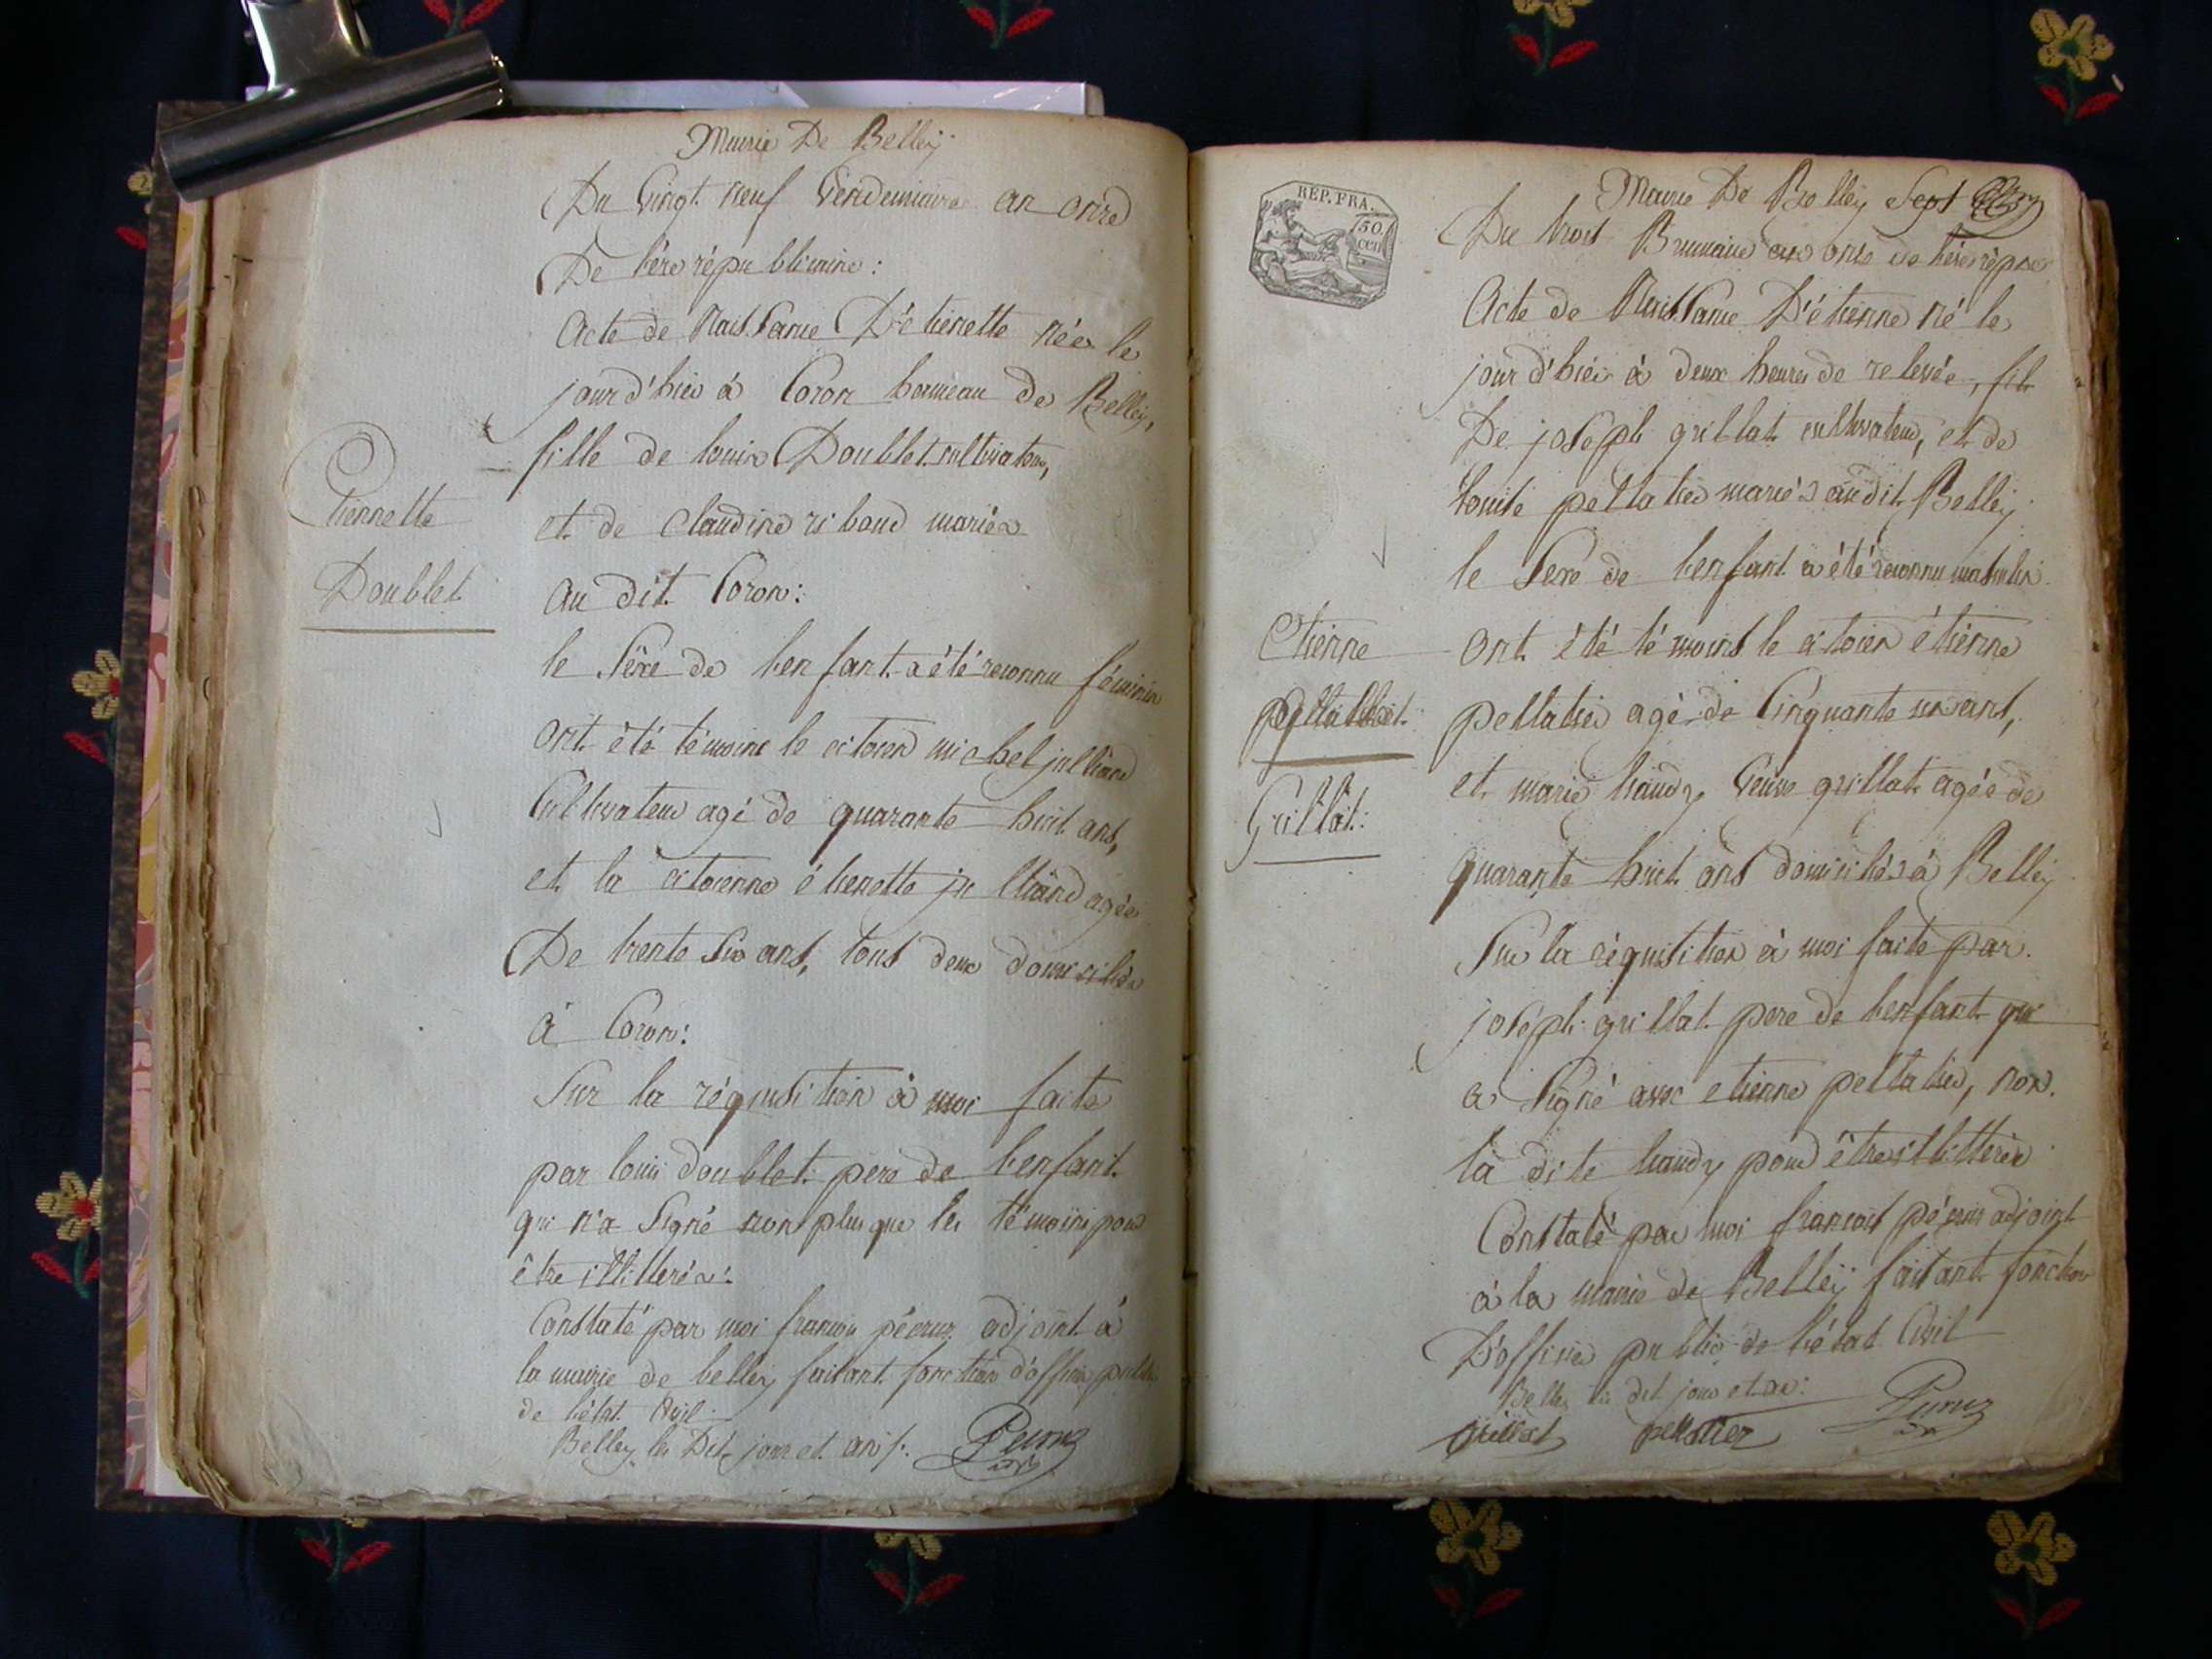 Mairie De Belleÿ
Du Vingt neuf Vendemiaire an onze
De l'ère républicaine:
Acte de Naissance D'étienette née le
jour d'hier à Coron hameau de Belleÿ,
fille de louis Doublet cultivateur,
Etiennette
et de Claudine ribaud mariés
Doublet
au dit Coron:
le Sexe de l'enfant a été reconnu féminin
ont été témoins le citoien michel julliand
Cultivateur agé de quarante huit ans,
et la citoienne étienette julliand agée
De trente Six ans, tous deux domiciliés
à Coron:
Sur la réquisition à moi faite
par louis doublet pere de l'enfant
qui n'a Signé non plus que les témoins pour
être illitterés:
Constaté par moi francois péeruz adjoint à
la mairie de belleÿ faisant fonction d'officier public
de l'état Civil
Belleÿ les Dit jour et an /.
REP. FRA.
50.
cen
Mairie De Belleÿ Sept
Du trois Brumaire an onze de l'ère répne
Acte de Naissance D'étienne né le
jour d'hier à deux heures de relevée, fils
De joseph grillat cultivateur, et de
louise pellatier mariés audit Belleÿ
le Sexe de l'enfant a été reconnu masculin
Etienne
ont été témoins le citoien étienne
pellatier agé de Cinquante un ans,
et marie Veuve grillat agée de
Grillat:
quarante huit ans domiciliés à Belleÿ
Sur la réquisition à moi faite par
joseph grillat pere de l'enfant qui
a Signé avec etienne pellatier, non
la dite pour être illitterée
Constaté par moi francois péeruz adjoint
à la mairie de Belleÿ faisant fonction
D'officier public de l'état Civil
Belleÿ les dit jour et an:
Grillat pellatier